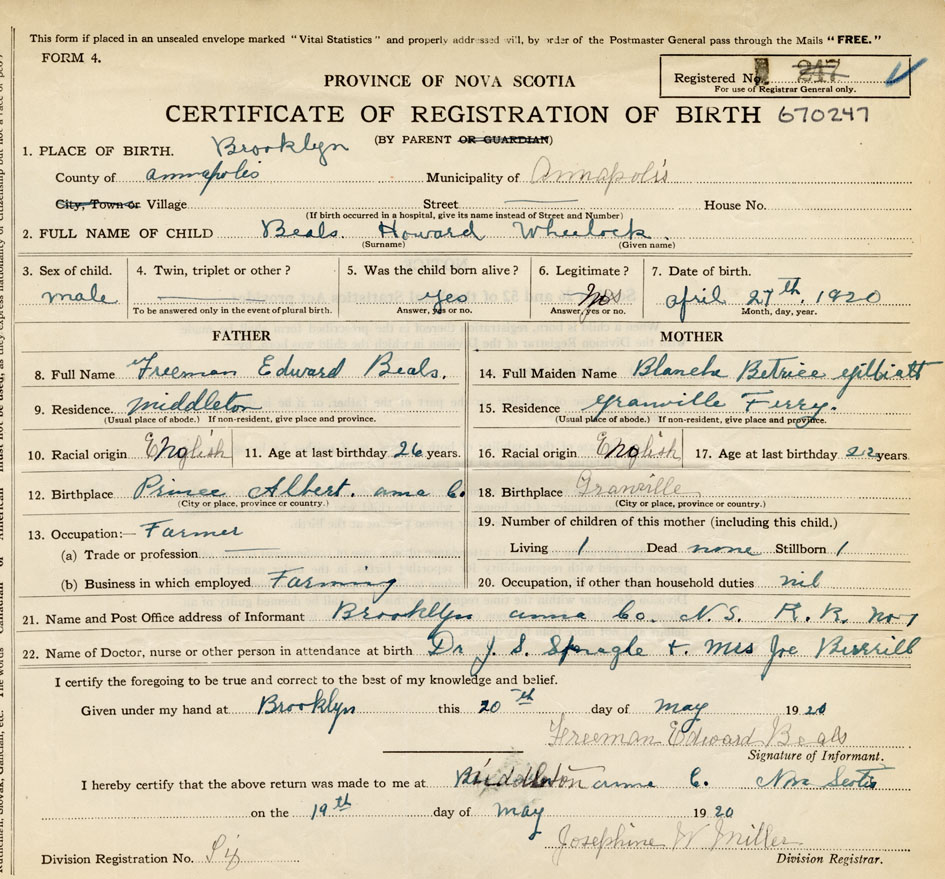 This form if placed in an unsealed envelope marked "Vital Statistics" and properly addressed will, by order of the Postmaster General pass through the Mails "FREE."
FORM 4.
Registered No. 247
For use of Registrar General only.
PROVINCE OF NOVA SCOTIA
CERTIFICATE OF REGISTRATION OF BIRTH 670247
(BY PARENT OR GUARDIAN)
1. PLACE OF BIRTH. Brooklyn
County of annapolis Municipality of Annapolis
City, Town or Village Street House No.
(If birth occurred in a hospital, give its name instead of Street and Number)
2. FULL NAME OF CHILD Beals. Howard Wheelock.
(Surname) (Given name)
3. Sex of child. 4. Twin, triplet or other? 5. Was the child born alive? 6. Legitimate? 7. Date of birth.
male yes yes april 27th. 1920
To be answered only in the event of plural birth. Answer, yes or no. Answer, yes or no. Month, day, year.
FATHER MOTHER
8. Full Name Freeman Edward Beals. 14. Full Maiden Name Blanche Betrice Gilliatt
9. Residence. Middleton 15. Residence Granville Ferry.
(Usual place of abode.) If non-resident, give place and province. (Usual place of abode.) If non-resident, give place and province.
10. Racial origin English 11. Age at last birthday 26 years. 16. Racial origin English 17. Age at last birthday 22 years.
12. Birthplace Prince Albert. anna Co. 18. Birthplace Granville
(City or place, province or country.) (City or place, province or country.)
13. Occupation:— Farmer 19. Number of children of this mother (including this child.)
(a) Trade or profession Living 1 Dead none Stillborn /
(b) Business in which employed Farming 20. Occupation, if other than household duties nil
21. Name and Post Office address of Informant Brooklyn anna Co. N.S. R.R. No 1
22. Name of Doctor, nurse or other person in attendance at birth Dr J. S. Spragle + Mrs Joe Burrill
I certify the foregoing to be true and correct to the best of my knowledge and belief.
Given under my hand at Brooklyn this 20th day of may 1920
Freeman Edward Beals
Signature of Informant.
I hereby certify that the above return was made to me at Middleton anna C. Nova Scotia
on the 19th day of may 1920
Josephine W Miller
Division Registration No. Division Registrar.